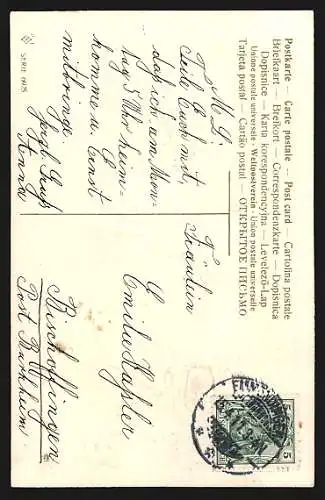 Postkarte — Carte postale — Post card — Cartolina postale
Briefkaart — Brefkort — Correspondenzkarte — Dopisnica
Dopisnice — Karta korespondencyjna — Levelező-Lap
Unione postale universale - Weltpostverein - Union postale universelle
Tarjeta postal — Cartão postal — ОТКРЫТОЕ ПИСЬМО
Teile Euch mit,
daß ich am Mon-
tag 5 Uhr heim-
komme u. Ernst
mitbringe
Fräulein
Emilie
Bischoffingen
Post Burkheim
5
5